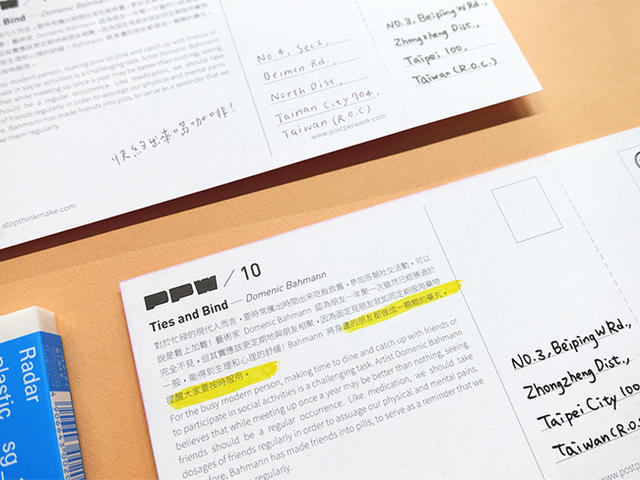 Bind — Domenic Bahmann
modern person, making time to dine and catch up with friends or
in social activities is a challenging task. Artist Domenic Bahmann
that while meeting up once a year may be better than nothing, seeing
should be a regular occurrence. Like medication, we should take
of friends regularly in order to assuage our physical and mental pains.
Bahmann has made friends into pills, to serve as a reminder that we
them regularly.
快約出來喝咖啡!
.stopthinkmake.com
No.4, Sec.1,
Beimen Rd.,
North Dist.,
Tainan City 704,
Taiwan (R.O.C)
www.postperweek.com
NO.3, Beiping W Rd.,
Zhongzheng Dist.,
Taipei 100,
Taiwan (R.O.C.)
PPW / 10
Ties and Bind — Domenic Bahmann
對於忙碌的現代人而言，要時常騰出時間出來吃飯敘舊，參加各類社交活動，可以
說是難上加難！藝術家 Domenic Bahmann 認為朋友一年聚一次雖然已經勝過於
完全不見，但其實應該更定期地與朋友相聚，因為固定見朋友就如同定期服用藥物
一般，能得到生理和心理的舒緩！Bahmann 將身邊的朋友都做成一顆顆的藥丸，
提醒大家要按時服用。
For the busy modern person, making time to dine and catch up with friends or
to participate in social activities is a challenging task. Artist Domenic Bahmann
believes that while meeting up once a year may be better than nothing, seeing
friends should be a regular occurrence. Like medication, we should take
dosages of friends regularly in order to assuage our physical and mental pains.
Bahmann has made friends into pills, to serve as a reminder that we
them regularly.
NO.3, Beiping W Rd.,
Zhongzheng Dist.,
Taipei City 100
Taiwan (R.O.C.)
Radar
plastic